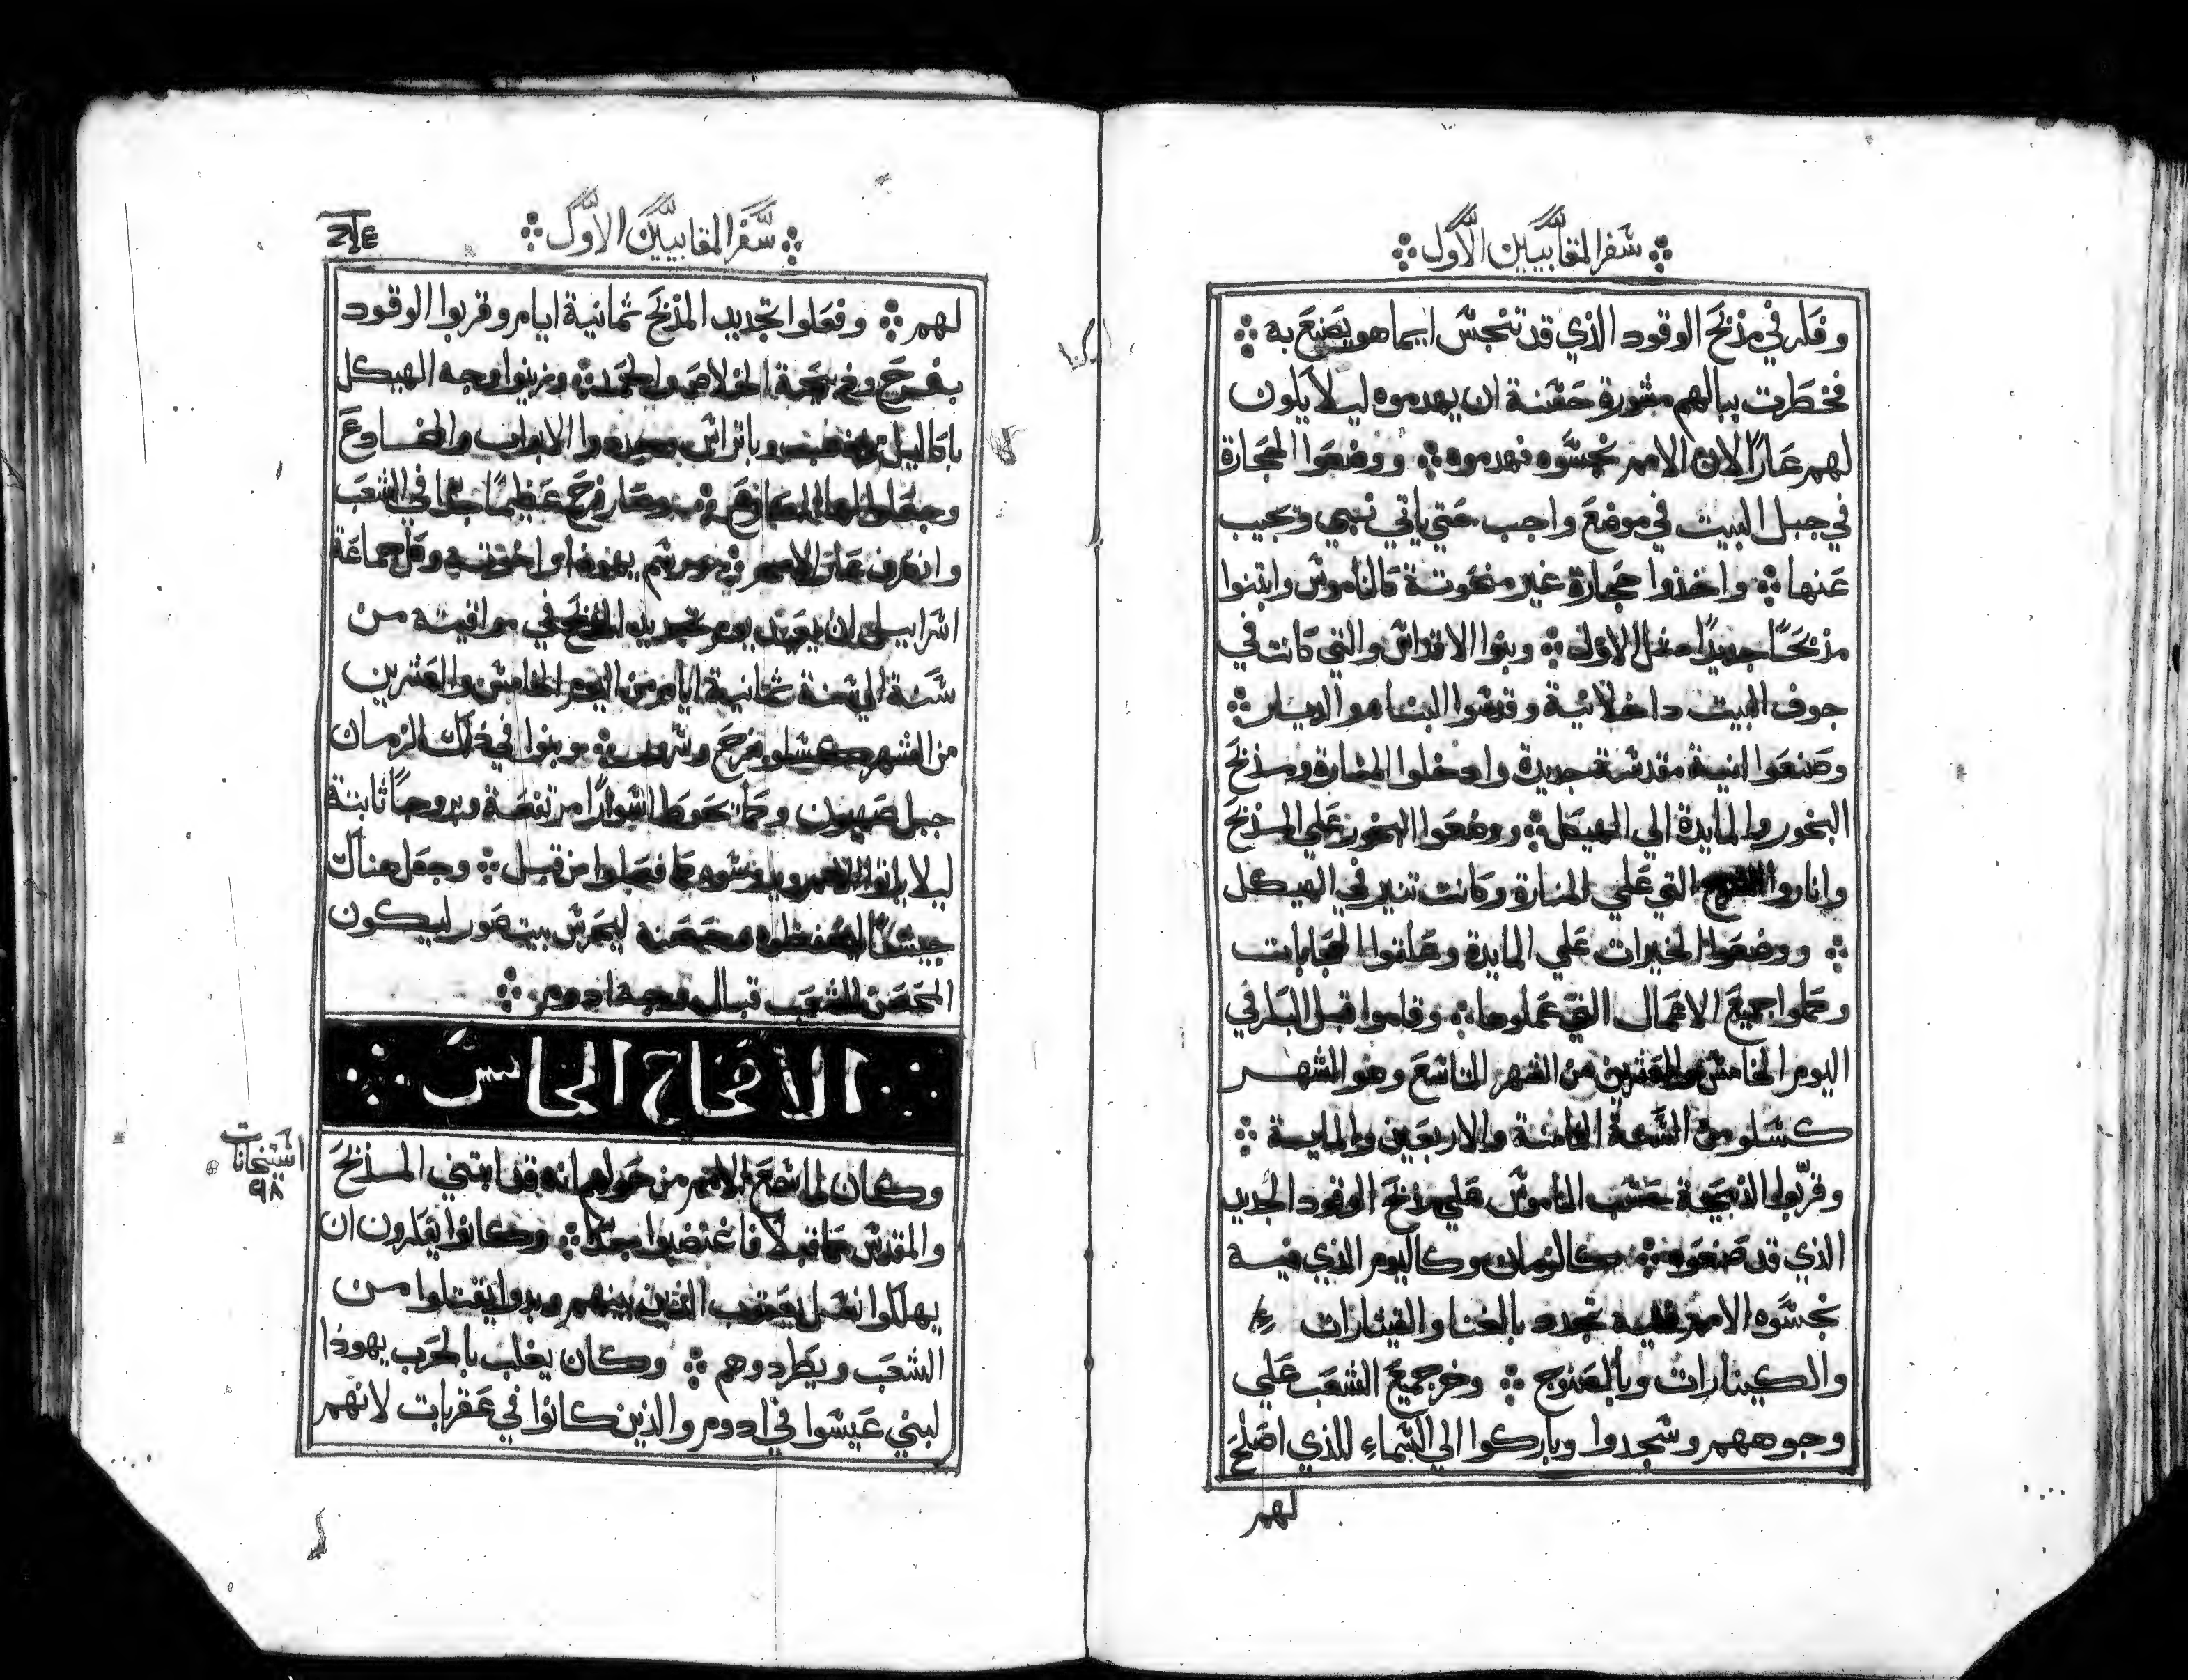 سفر المقابيين الاول
وفكر في مذبح الوقود الذي قد تنجس ايما هو يصنع به
فخطرت ببالهم مشورة حسنة ان يهدموه ليلا يكون
لهم عارًا لان الامم نجسوه فهدموه ووضعوا الحجارة
في جبل البيت في موضع واجب حتي ياتي نبي وتجيب
عنها واخذوا حجارة غير منحوتة كالناموس وابتنوا
مذبحًا جديدًا مثل الاول وبنوا الاقداس والتي كانت في
جوف البيت داخلانية وقدسوا البيت والديار
وصنعوا انية مقدسة جديدة وادخلوا المنارة ومذبح
البخور والمايدة الي الهيكل ووضعوا البخور علي المذبح
واناروا السرج التي علي المنارة وكانت تنير في الهيكل
ووضعوا الخبزات علي المايدة وعلقوا الحجابات
وكملوا جميع الاعمال التي عملوها وقاموا قبل الباكر في
اليوم الخامس والعشرين من الشهر التاسع وهو الشهر
كسلو من السنة الثامنة والاربعين والماية
وقربوا الذبيحة حسب الناموس علي مذبح الوقود الجديد
الذي قد صنعوه كالزمان وكاليوم الذي فيه
نجسوه الامم فيه تجدد بالغنا والقيثارات
والكينارات وبالصنوج وخر جميع الشعب علي
وجوههم وسجدوا وباركوا الي السماء للذي اصلح
لهم
سفر المقابيين الاول
لهم وفعلوا تجديد المذبح ثمانية ايام وقربوا الوقود
بفرح وذبيحة الخلاص والحمد وزينوا وجه الهيكل
باكاليل من ذهب وباتراس وجددوا الابواب والمخادع
وجعلوا لها المصاريع وصار فرح عظيمًا جدًا في الشعب
وانصرف عار الامم ورسم يهوذا واخوته وكل جماعة
اسراييل ان يعهد يوم تجديد المذبح في مواقيته من
سنة الي سنة ثمانية ايام من اليوم الخامس والعشرين
من الشهر كسلو بفرح وسرور وبنوا في ذلك الزمان
جبل صهيون وكما تحوط اسوارًا مرتفعة وبروجًا ثابتة
ليلا ياتوا الامم ويدوسوه كما فعلوا من قبل وجعل هناك
جيشًا ليحفظوه وحصنه ليحرس بيت صور ليكون
الحصن للشعب قبال وجه ادوم
الاصحاح الخامس
وكان لما سمع الامم من حولهم انه قد ابتني المذبح
والمقدس كما قبلًا فاغتضبوا جدًا وكانوا يفكرون ان
يهلكوا نسل يعقوب الذين بينهم وبدوا يقتلوا من
الشعب ويطردوهم وكان يغلب بالحرب يهوذا
لبني عيسوا في ادوم والذين كانوا في عقربات لانهم